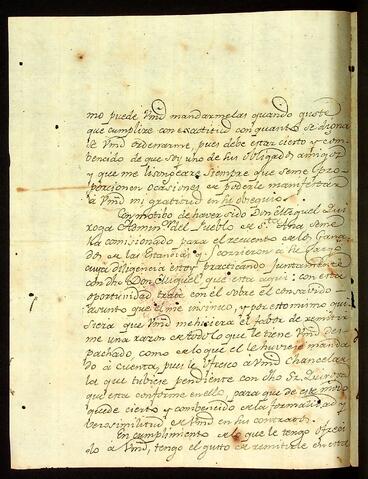 mo puede Vmd mandarmelas quando guste
que cumplire con exactitud con quanto se digna
se Vmd ordenarme, pues debe estar cierto y con
bencido de que soy uno de sus obligados amigos
y que me lisongeare siempre que se me pro-
porcionen ocasiones en poderle manifestar
à Vmd mi gratitud en su obsequio.
Con motibo de haver sido Don Miguel Qui
roga Admin.r del Pueblo de S.ta Ana se me
ha comisionado para el recuento de los Gana
dos de las Estancias q.e corrieron a su Cargo
cuya diligencia estoy practicando juntamente
con dho Don Miguel, que esta aqui: con esta
oportunidad traté con él sobre el consavido
asunto que él me insinuó, y por esto mismo qui
siera que Vmd me hiciera el fabor de remitir
me una razon de todo lo que le tiene Vmd des
pachado, como de lo que el le huviese manda
do à cuenta, pues le ofresco à Vmd Chancelar
la que tubiese pendiente con dho S.r Quiroga
que esta conforme en ello, para que de este modo
quede cierto y combencido de la formalidad y
berosimilitud de Vmd en sus contratos.
En cumplimiento de lo que le tengo ofreci
do à Vmd, tengo el gusto de remitirle en esta